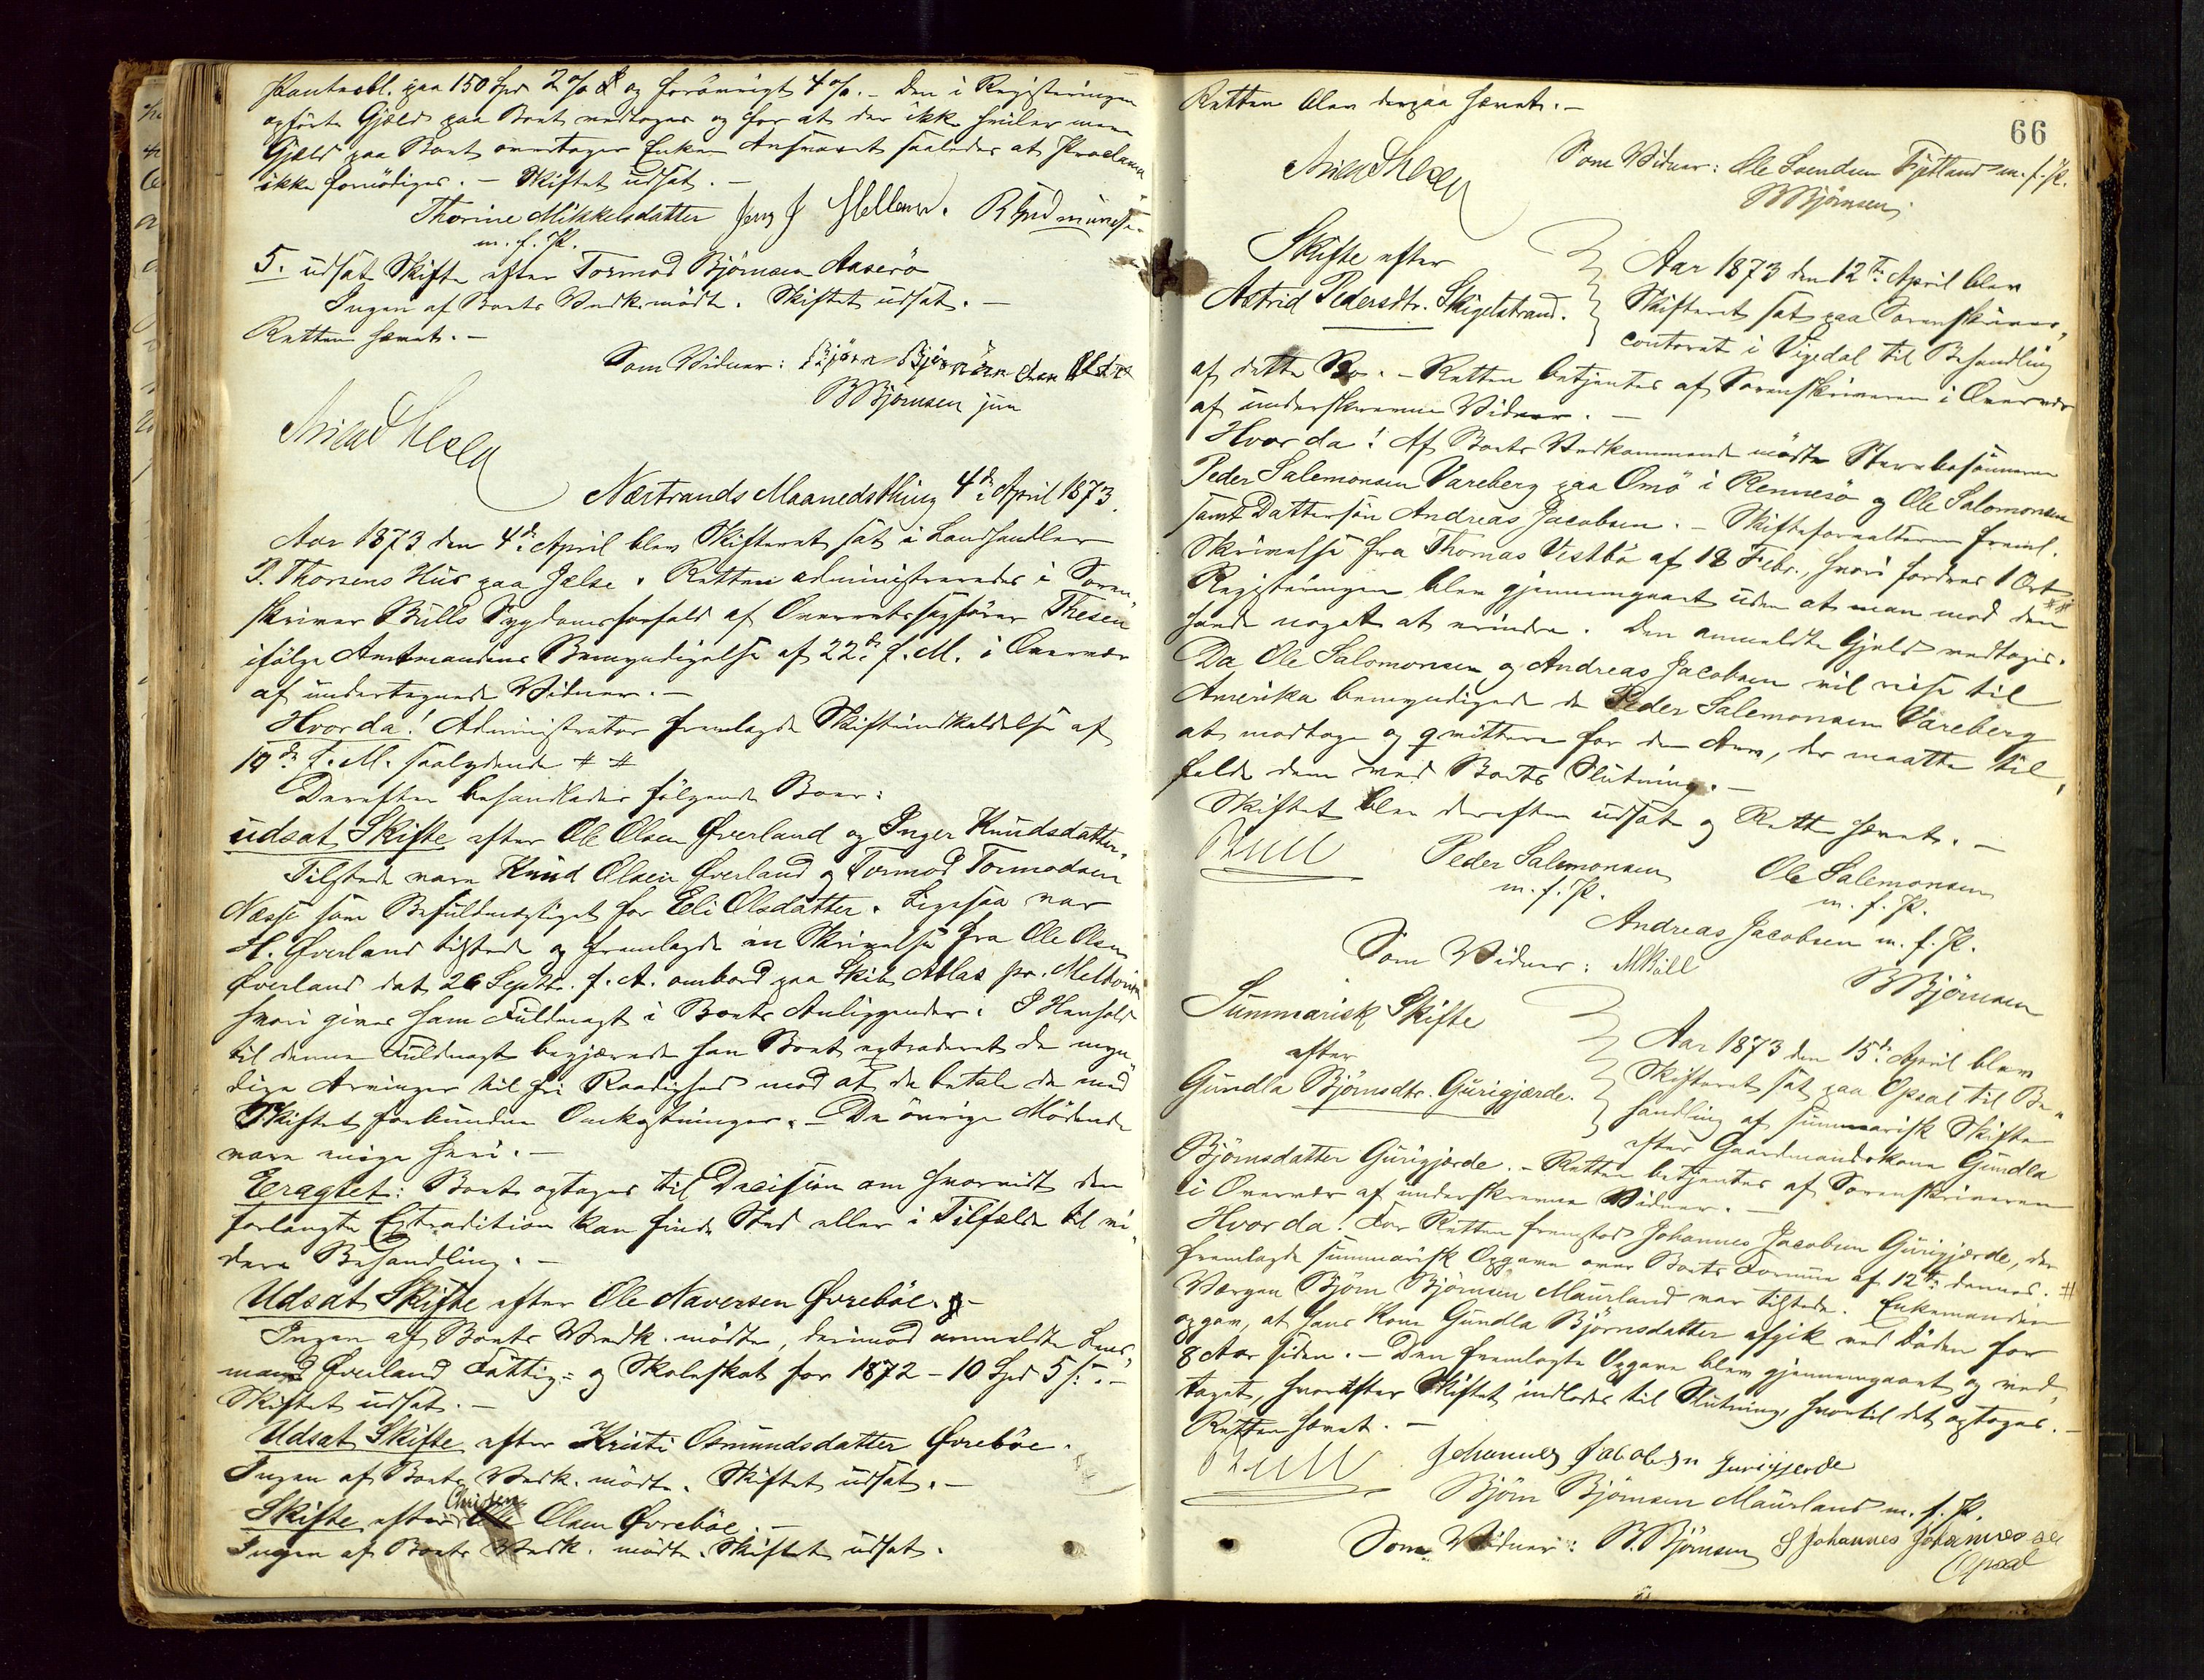 Pantaobl. paa 150 Spd 2 % og forövrigt 4 %. - Den i Registeringen
opförte Gjæld paa Boet vedtoges og for at der ikke hviler mere
Gjæld paa Boet overtager Enken Ansvaret saaledes at Proclama
ikke fornödiges. - Skiftet udsat. -
Thorine Mikkelsdatter Jens J Hellem. R Asmundsen
m. f. P.
5. udsat Skifte efter Tormod Björnsen Aaserö
Ingen af Boets Vedk. mödte. Skiftet udsat. -
Retten hævet. -
Som Vidner: Björn Björnsen
B Björnsen jun
Næstrands Maanedsthing 4de April 1873.
Aar 1873 den 4de April blev Skifteret sat i Landhandler
P. Thorsens Hus paa Jelse. Retten administreredes i Soren-
skriver Bülls Sygdomsforfald af Overretssagförer Thesen
ifölge Amtmandens Bemyndigelse af 22de f. M. i Overvær
af undertegnede Vidner. -
Hvorda! Administrator fremlagde Skifteindkaldelse af
10de f. M. saalydende # #
Derefter behandledes fölgende Boer:
udsat Skifte efter Ole Olsen Øverland og Inger Knudsdatter.
Tilstede vare Knud Olsen Øverland og Tormod Tormodsen
Næsse som Befuldmægtiget for Eli Olsdatter. Ligesaa var
H. Øverland tilstede og fremlagde en Skrivelse fra Ole Olsen
Øverland dat 26 Septbr. f. A. ombord paa Skib Atlas pr.
hvori gives ham Fuldmagt i Boets Anliggender. I Henhold
til denne Fuldmagt begjærede han Boet extraderet de myn-
dige Arvinger til fri Raadighed mod at de betale de med
Skiftet forbundne Omkostninger. - De övrige Mödende
vare enige heri. -
Eragtet: Boet optages til Decision om hvorvidt den
forlangte Extradition kan finde Sted eller i Tilfælde til vi-
dere Behandling. -
Udsat Skifte efter Ole Naversen Øvrebøe. -
Ingen af Boets Vedk. mödte, derimod anmeldte Lens-
mand Øverland Fattig- og Skoleskat for 1872 - 10 Spd 5 s. -
Skiftet udsat. -
Udsat Skifte efter Kristi Osmundsdatter Øvrebøe.
Ingen af Boets Vedk. mödte. Skiftet udsat. -
Skifte efter Christen Olsen Øvrebøe. -
Ingen af Boets Vedk. mödte. Skiftet udsat.
Retten blev derpaa hævet. -
66
Som Vidner: Ole Svendsen Fjetland m. f. P.
B Björnsen
Skifte efter
Astrid Pedersdtr. Skigelstrand.
Aar 1873 den 12te April blev
Skifteret sat paa Sorenskriver-
contoret i Vigedal til Behandling
af dette Bo. - Retten betjentes af Sorenskriveren i Overvær
af underskrevne Vidner. -
Hvorda! Af Boets Vedkommende mödte Stervbosönnerne
Peder Salemonsen Vareberg paa Omö i Rennesö og Ole Salomonsen
samt Dattersön Andreas Jacobsen. - Skifteforvalteren freml.
Skrivelse fra Thomas Vestbö af 18 Febr., hvori fordres 1 Ort ##
Registeringen blev gjennemgaaet uden at man mod den
havde noget at erindre. Den anmeldte Gjæld vedtoges.
Da Ole Salomonsen og Andreas Jacobsen vil reise til
Amerika bemyndigede de Peder Salemonsen Vareberg
at modtage og qvittere for den Arv, der maatte til-
falde dem ved Boets Slutning. -
Skiftet blev derefter udsat og Retten hævet. -
Büll Peder Salemonsen Ole Salemonsen
m. f. P. m. f. P.
Andreas Jacobsen m. f. P.
Som Vidner: MBüll B Björnsen
Summarisk Skifte
efter
Gundla Björnsdtr. Gurigjærde.
Aar 1873 den 15de April blev
Skifteret sat paa Opsal til Be-
handling af summarisk Skifte
efter Gaardmandskone Gundla
Björnsdatter Gurigjerde. - Retten betjentes af Sorenskriveren
i Overvær af underskrevne Vidner. -
Hvorda! For Retten fremstod Johannes Jacobsen Gurigjerde, der
fremlagde summarisk Opgave over Boets Formue af 12te dennes. #
Værgen Björn Björnsen Maurland var tilstede. Enkemanden
opgav, at hans Kone Gundla Björnsdatter afgik ved Döden for
8 Aar siden. - Den fremlagte Opgave blev gjennemgaaet og ved-
taget, hvorefter Skiftet indlodes til Slutning, hvortil det optoges. -
Retten hævet. -
Büll Johannes Jacobsen Gurigjerde
Björn Björnsen Maurland m. f. P.
Som Vidner: B. Björnsen Johannes Johannessen
Opsal